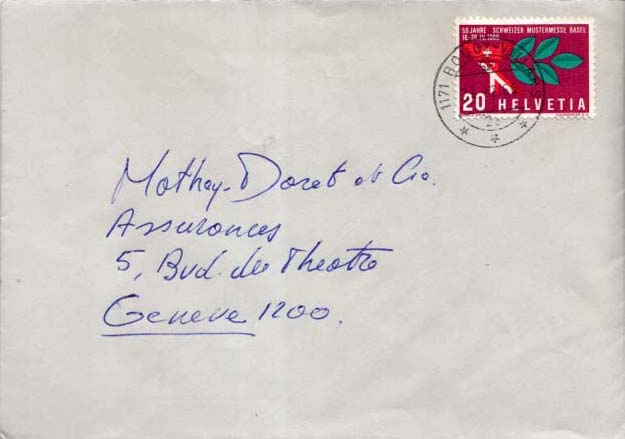 50 JAHRE SCHWEIZER MUSTERMESSE BASEL
20 HELVETIA
1171
Mathey-Doret et Cie.
Assurances
5, Bvd. du Theatre
Geneve 1200.